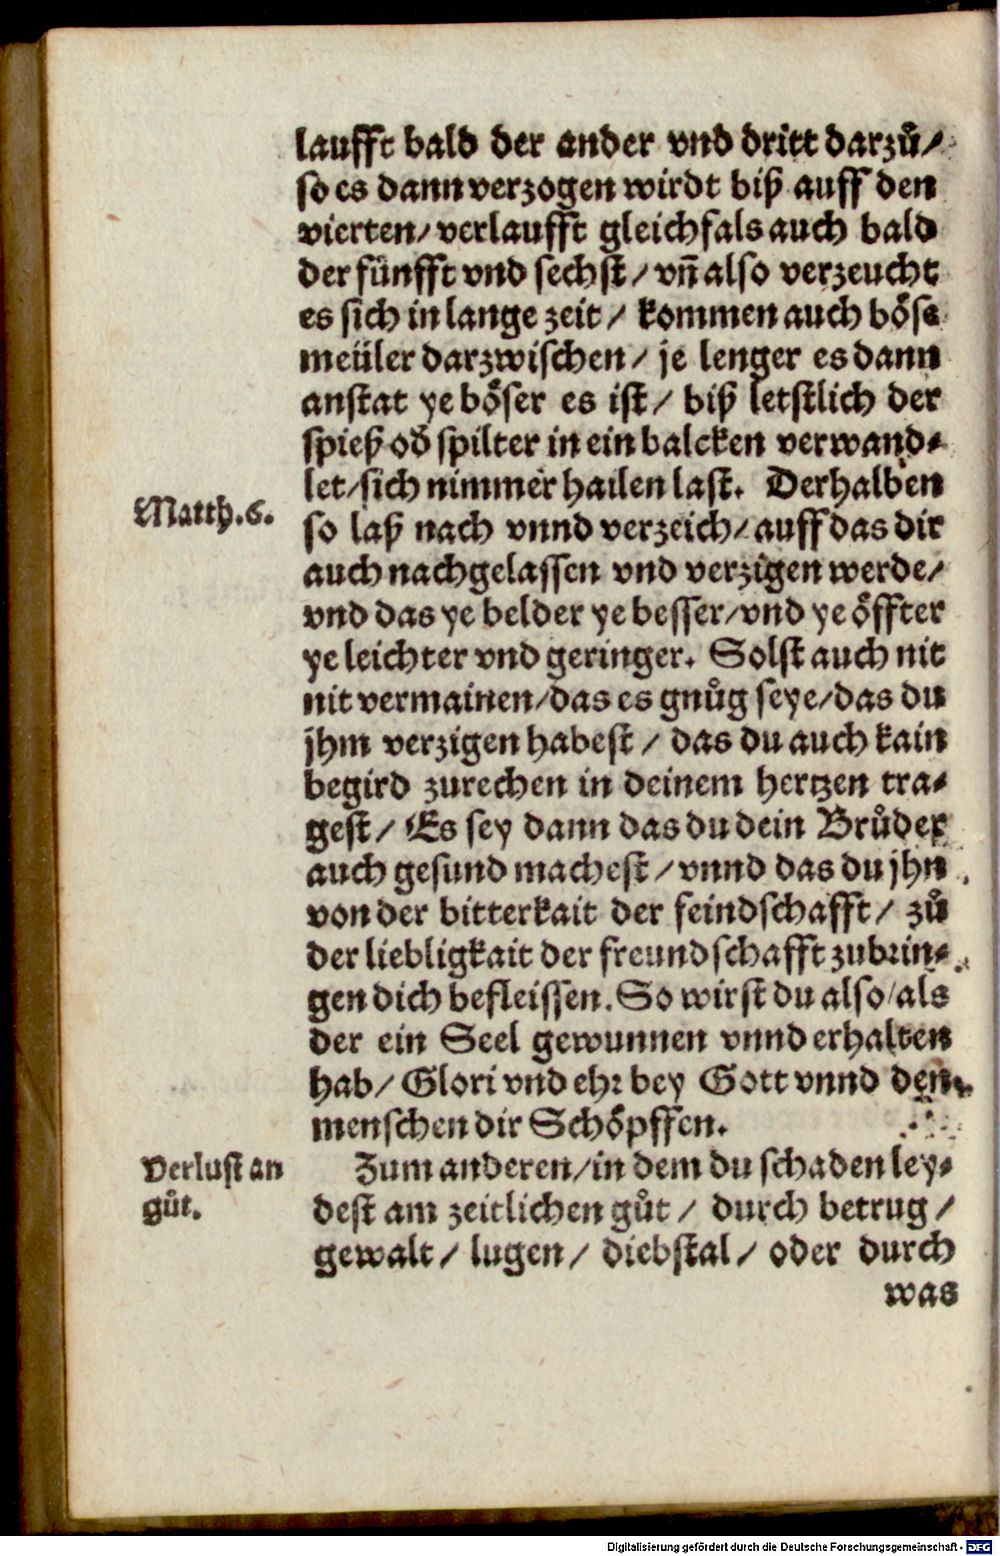 laufft bald der ander vnd dritt darzů/
so es dann verzogen wirdt biß auff den
vierten/ verlaufft gleichfals auch bald
der fünfft vnd sechst/ vñ also verzeucht
es sich in lange zeit/ kommen auch böse
meüler darzwischen/ je lenger es dann
anstat ye böser es ist/ biß letstlich der
spieß oď spilter in ein balcken verwand⸗
let/ sich nimmer hailen last. Derhalben
Matth.6.
so laß nach vnnd verzeich/ auff das dir
auch nachgelassen vnd verzigen werde/
vnd das ye belder ye besser/ vnd ye öffter
ye leichter vnd geringer. Solst auch nit
nit vermainen/ das es gnůg seye/ das du
jhm verzigen habest/ das du auch kain
begird zurechen in deinem hertzen tra⸗
gest/ Es sey dann das du dein Brůder
auch gesund machest/ vnnd das du jhn
von der bitterkait der feindschafft/ zů
der liebligkait der freundschafft zubrin⸗
gen dich befleissen. So wirst du also/ als
der ein Seel gewunnen vnnd erhalten
hab/ Glori vnd ehr bey Gott vnnd den
menschen dir Schöpffen.
Verlust an
gůt.
Zum anderen/ in dem du schaden ley⸗
dest am zeitlichen gůt/ durch betrug/
gewalt/ lugen/ diebstal/ oder durch
was
Digitalisierung gefördert durch die Deutsche Forschungsgemeinschaft - DFG